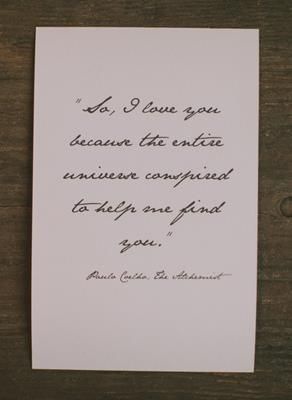 "So, I love you
because the entire
universe conspired
to help me find
you."
Paulo Coelho, The Alchemist